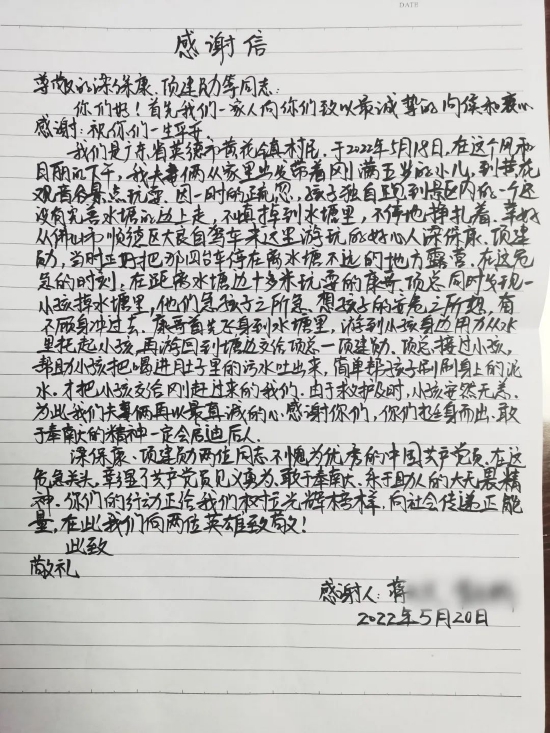 DATE
感谢信
尊敬的深保康、顶建勋等同志:
你们好!首先我们一家人向你们致以最诚挚的问候和衷心
感谢:祝你们一生平安
我们是广东省英德市黄花镇村民,于2022年5月18日,在这个风和
日丽的下午,我夫妻俩从家里出发带着刚满五岁的小儿,到黄花
观音台景点玩耍,因一时的疏忽,孩子独自跑到景区内的一个还
没有完善水塘的边上走,不慎掉到水塘里,不停地挣扎着。幸好
从佛山市顺德区大良自驾车来这里游玩的好心人深保康、顶建
勋,当时正好把那四台车停在离水塘不远的地方露营,在这危
急的时刻;在距离水塘边十多米玩耍的康哥、顶总同时发现一
小孩掉水塘里,他们急孩子之所急,想孩子的安危之所想,奋
不顾身冲过去,康哥首先飞身到水塘里,游到小孩身边用力从水
里托起小孩,再游回到塘边交给顶总一顶建勋。顶总接过小孩,
帮助小孩把喝进肚子里的污水吐出来,简单帮孩子刷刷身上的泥
水,才把小孩交给刚赶过来的我们。由于救护及时,小孩安然无恙。
为此我们夫妻俩再以最真诚的心感谢你们,你们挺身而出、敢
于奉献的精神一定会启迪后人。
深保康、顶建勋两位同志不愧为优秀的中国共产党员,在这
危急关头,彰显了共产党员见义勇为、敢于奉献、乐于助人的大无畏精
神。你们的行动正给我们树立光辉榜样,向社会传递正能
量,在此我们向两位英雄致敬!
此致
敬礼
感谢人:蒋
2022年5月20日